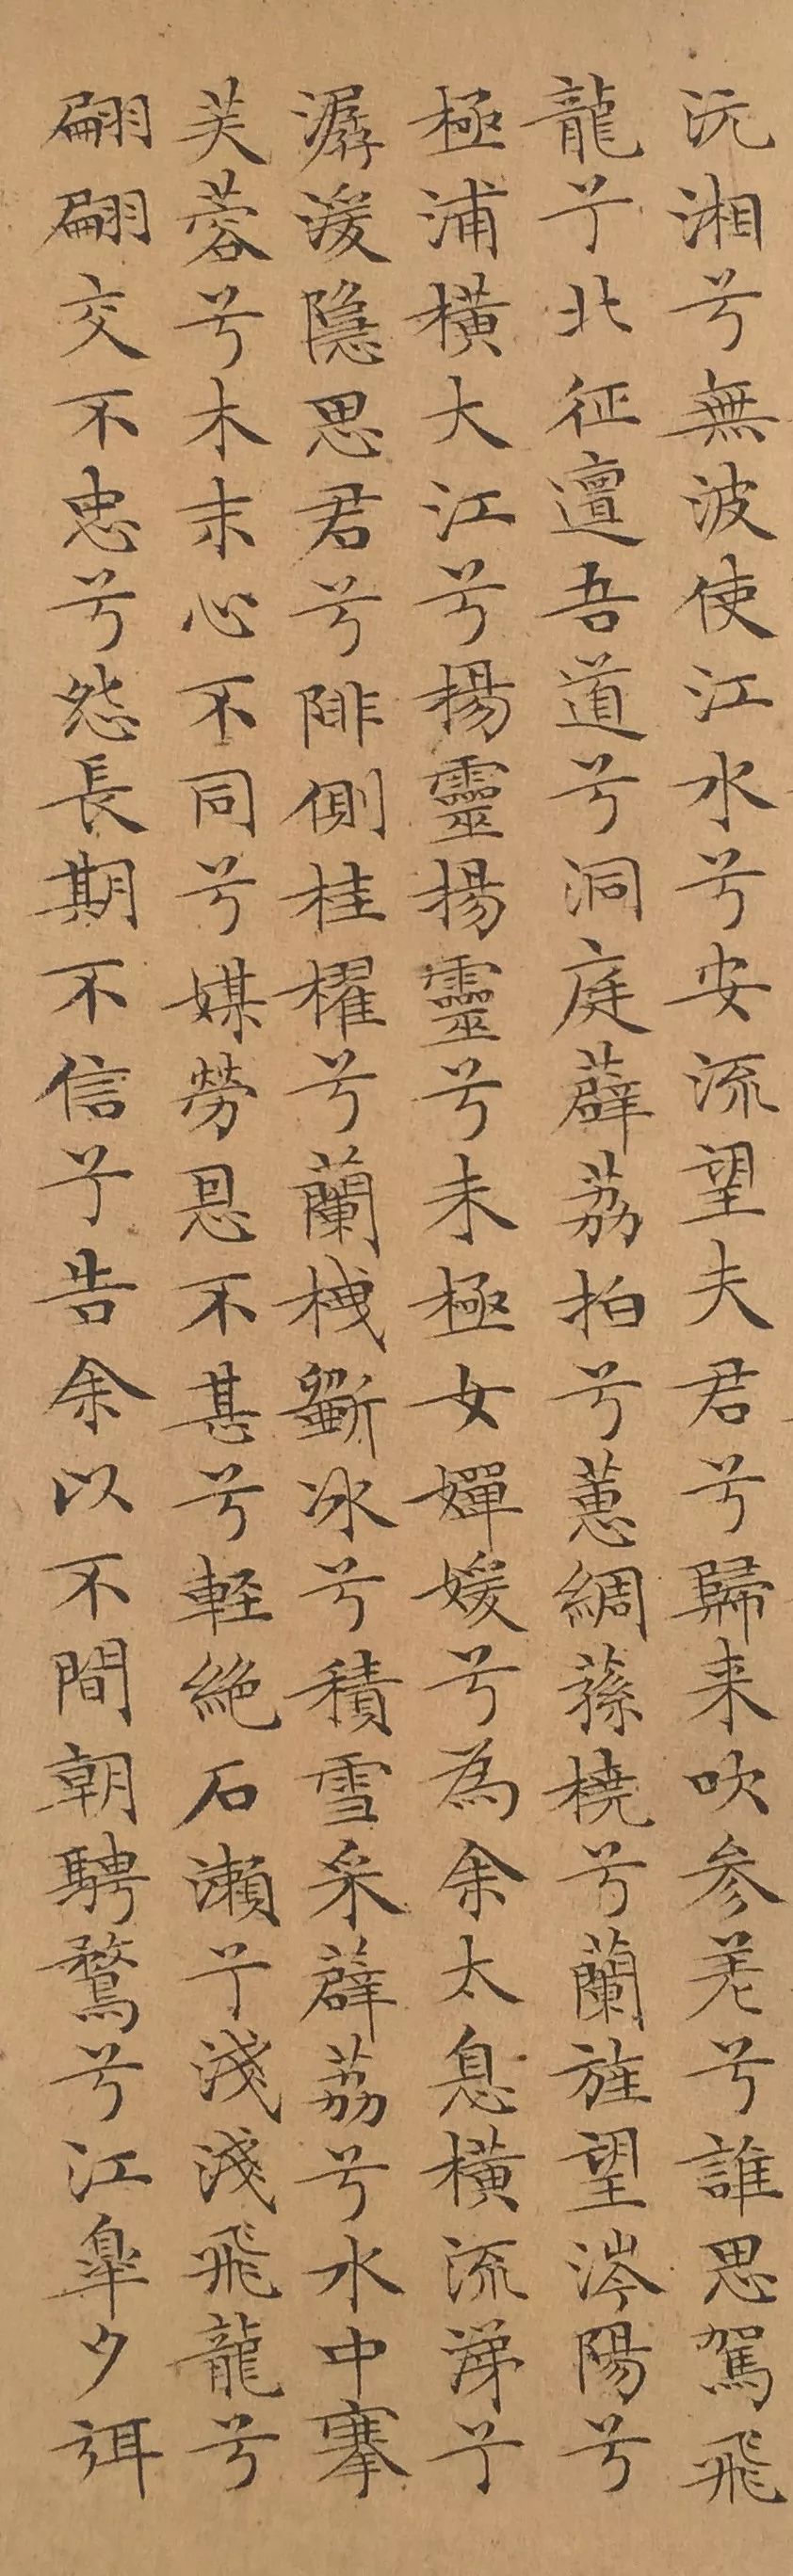 沅湘兮無波使江水兮安流望夫君兮歸来吹参差兮誰思駕飛
龍兮北征邅吾道兮洞庭薜荔拍兮蕙綢蓀橈兮蘭旌望涔陽兮
極浦橫大江兮揚靈揚靈兮未極女嬋媛兮為余太息橫流涕兮
潺湲隱思君兮陫側桂櫂兮蘭栧斲冰兮積雪采薜荔兮水中搴
芙蓉兮木末心不同兮媒勞恩不甚兮軽絶石瀨兮淺淺飛龍兮
翩翩交不忠兮怨長期不信兮告余以不間朝騁鶩兮江皐夕弭